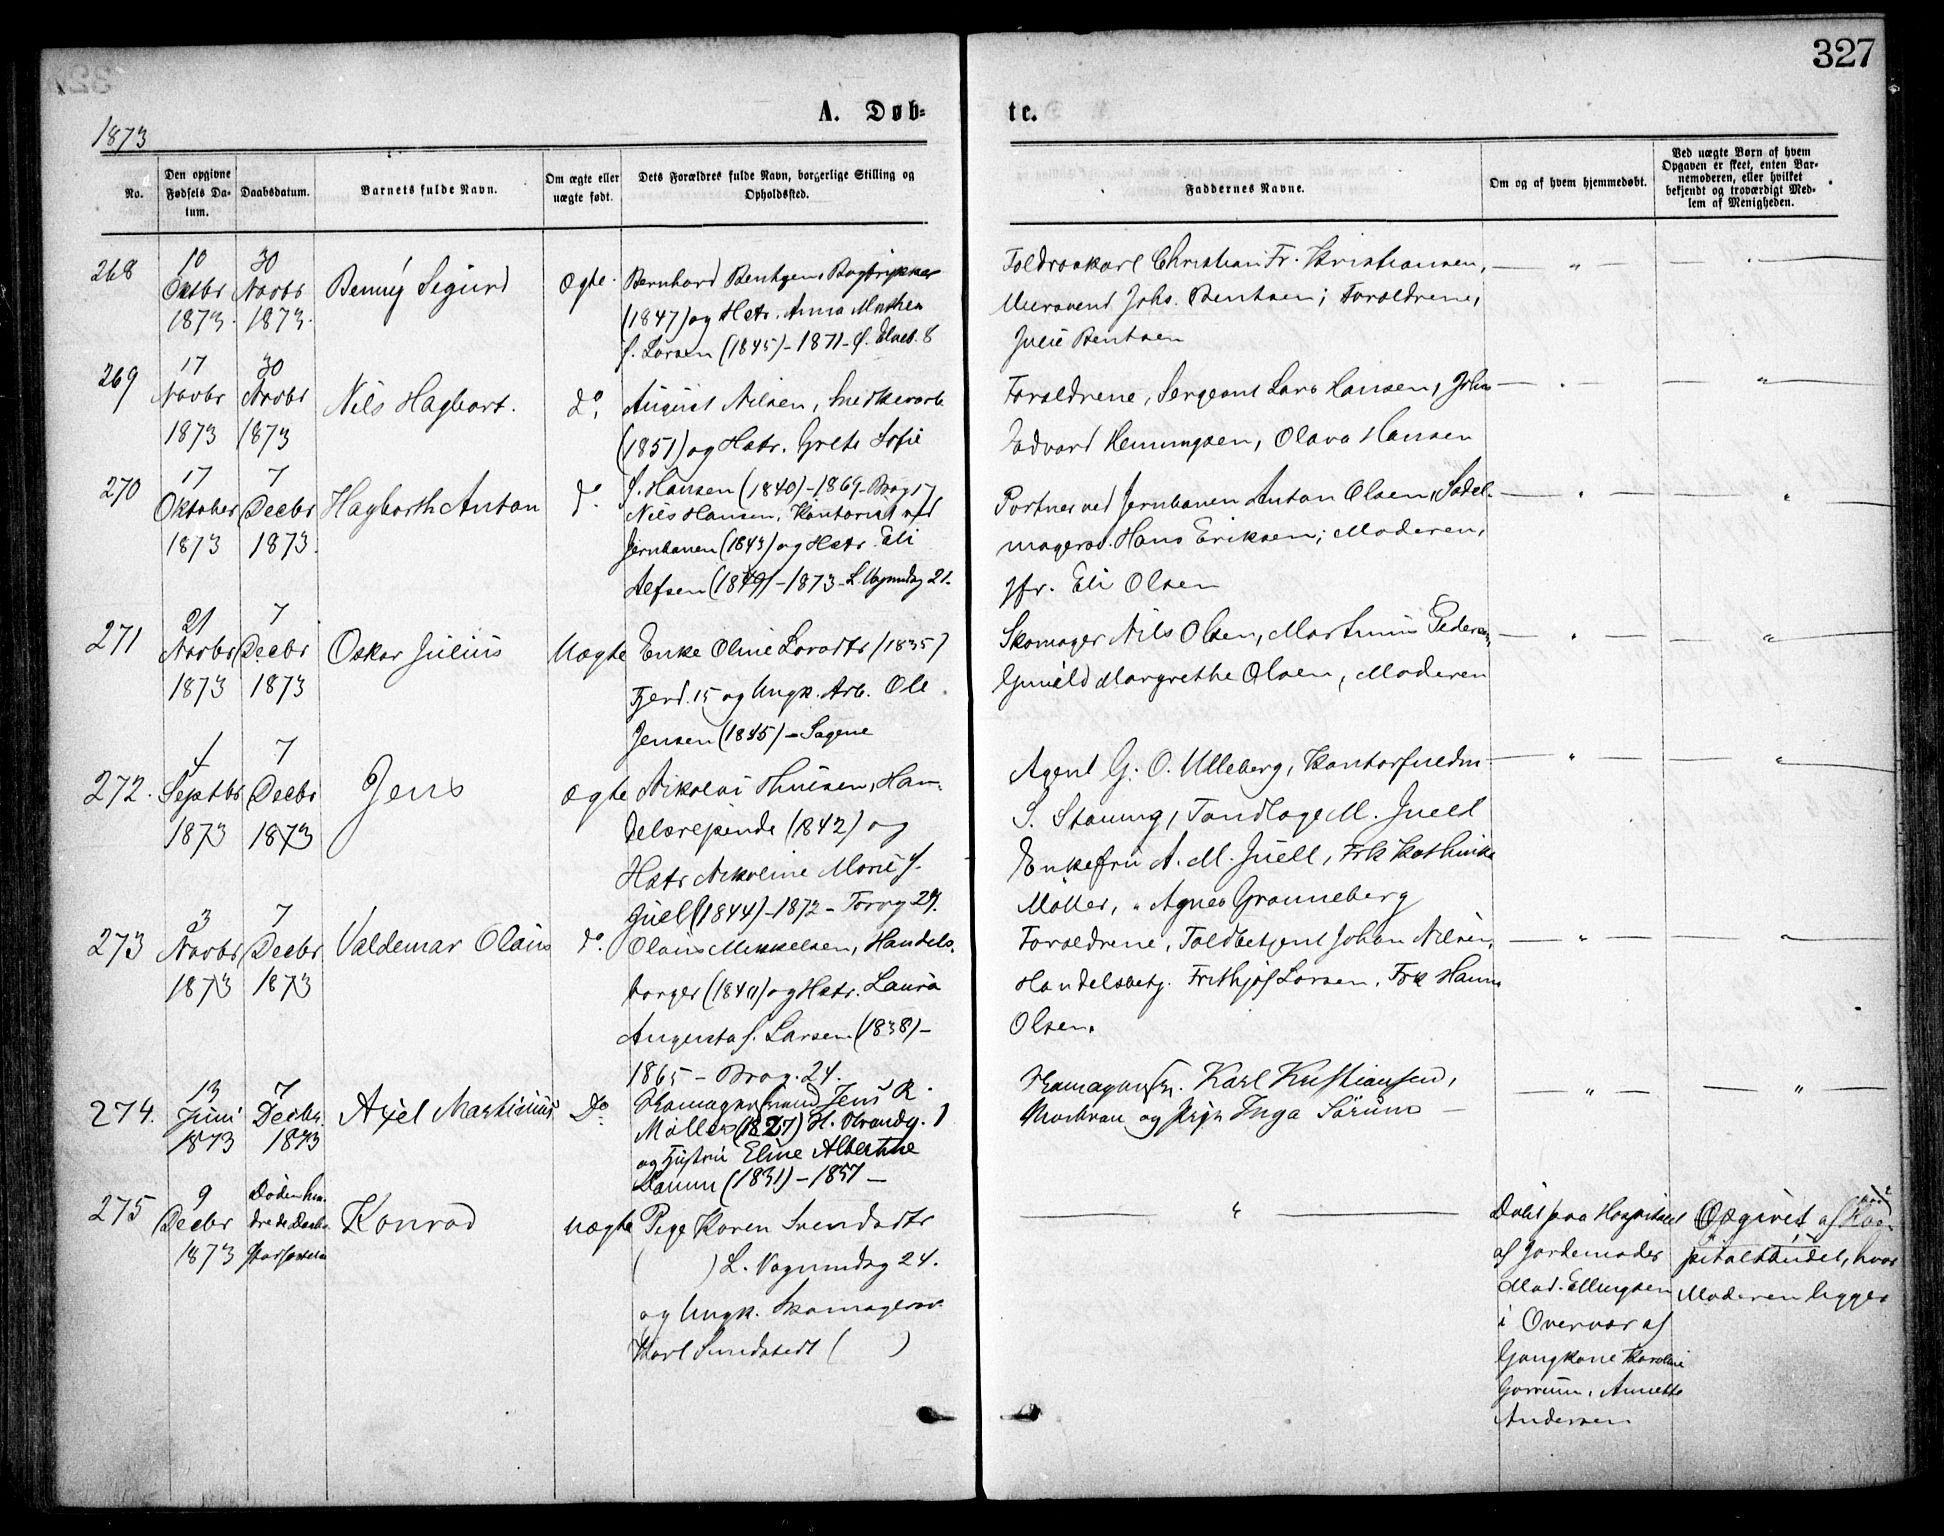 327
A. Døb-
te.
1873
No.
Den opgivne Fødsels Da-tum.
Daabsdatum.
Barnets fulde Navn.
Om ægte eller uægte født.
Dets Forældres fulde Navn, borgerlige Stilling og Opholdssted.
Faddernes Navne.
Om og af hvem hjemmedøbt.
Ved uægte Børn af hvem Opgaven er skeet, enten Bar-nemoderen, eller hvilket bekjendt og troværdigt Med-lem af Menigheden.
268
10 Oktbr 1873.
30 Novbr 1873.
Benny Sigurd
Ægte.
Bernhard Bentzen, Bogtrykker
(1847) og Hstr. Anna Mathea
f. Larsen (1845) - 1871 - Ø. Elveb. 8
Christian Fr. Kristiansen,
Mursvend Johs. Bentsen; Forældrene,
Julie Bentsen
269
17 Novbr 1873
30 Novbr 1873
Nils Hagbart.
do.
August Nilsen, Snedkerarb
(1851) og Hstr. Grete Sofie
f. Hansen (1840) - 1869 - Brog 17
Forældrene, Sergeant Lars Hansen, John
Edvard Hemmingsen, Olava Hansen
270
17 Oktober 1873
7 Decbr 1873.
Hagbarth Anton
do
Nils Hansen, Kontorist ved
Jernbanen (1843) og Hstr. Eli
Alfsen (1849) - 1873 - L. Vognmdsg 21.
Portner ved Jernbanen Anton Olsen, Sadel-
magersv. Hans Eriksen; Moderen,
Jfr. Eli Olsen
271
21 Novbr 1873
7 Decbr 1873
Oskar Julius
Uægte
Enke Oline Larsdtr (1835)
Fjerd. 15 og Ungk. Arb. Ole
Jensen (1845) - Sagene
Skomager Nils Olsen, Martinius Pedersen,
Gunild Margrethe Olsen, Moderen
272.
4 Septbr 1873
7 Decbr 1873
Jens
Ægte
Nikolai Thuesen, Han-
delsrejsende (1842) og
Hstr Nikoline Marie f.
Juell (1844) - 1872 - Torvg 29.
Agent G. O. Ulleberg, Kontorfuldm.
S. Staung, Tandlæge M. Juell
Enkefru A. M. Juell, Frk Kathinka
Møller, " Agnes Granneberg
273
3 Novbr 1873
7 Decbr 1873
Valdemar Olaus
do.
Olaus Mikkelsen, Handels-
borger (1840) og Hstr. Laura
Augusta f. Larsen (1838) -
1865 - Brog. 24.
Forældrene, Toldbetjent Johan Nilsen,
Handelsbetj. Frithjof Larsen. Frk Hanna
Olsen.
274.
13 Juni 1873
7 Decbr. 1873
Axel Martinius
Do.
Skomagersvend Jens R.
Møller (1827) H. Strandg. 1
og Hustru Eline Albertine
Damm (1831) - 1857 -
Skomagersv. Karl Kristiansen,
Madam og Pige Inga Sörum -
275
9 Decbr 1873
Døden hin-
drede Daabs-
Konrad
Uægte
Pige Karen Svendsdtr
( ) L. Vognmdsg 24.
og Ungk. Skomagersv.
Karl Sundstedt ( )
Døbt paa Hospitalet
af Jordemoder
Mad. Ellingsen
i Overvær af
Gangkone Karoline
Gorrum, Annette
Andersen
Opgivet af Hos-
pitalsbudet, hvor
Moderen ligger